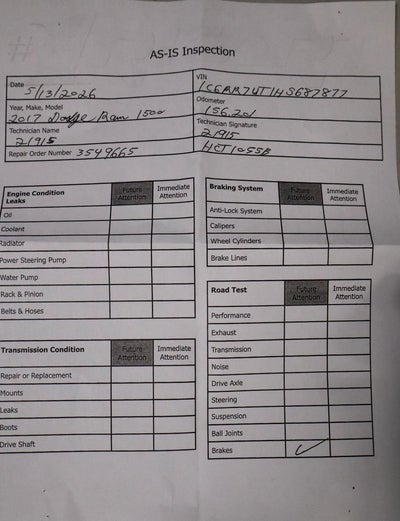 AS-IS Inspection
Date 5/13/2026
VIN 1C6RR7UT1HS687877
Year, Make, Model 2017 Dodge Ram 1500
Odometer 156,201
Technician Name 21915
Technician Signature 21915
Repair Order Number 3549665
HCT1055B
Engine Condition Future Attention Immediate Attention
Leaks
Oil
Coolant
Radiator
Power Steering Pump
Water Pump
Rack & Pinion
Belts & Hoses
Braking System Future Attention Immediate Attention
Anti-Lock System
Calipers
Wheel Cylinders
Brake Lines
Transmission Condition Future Attention Immediate Attention
Repair or Replacement
Mounts
Leaks
Boots
Drive Shaft
Road Test Future Attention Immediate Attention
Performance
Exhaust
Transmission
Noise
Drive Axle
Steering
Suspension
Ball Joints
Brakes ✓